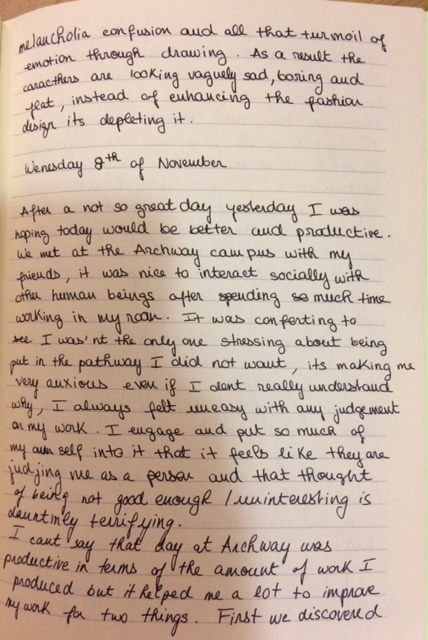 melancholia confusion and all that turmoil of
emotion through drawing. As a result the
caracthers are looking vaguely sad, boring and
flat, instead of enhancing the fashion
design its depleting it.
Wenesday 8th of November
After a not so great day yesterday I was
hoping today would be better and productive.
We met at the Archway campus with my
friends, it was nice to interact socially with
other human beings after spending so much time
working in my room. It was conforting to
see I was'nt the only one stressing about being
put in the pathway I did not want, its making me
very anxious even if I dont really understand
why, I always felt uneasy with any judgement
on my work. I engage and put so much of
my own self into it that it feels like they are
judjing me as a person and that thought
of being not good enough / uninteresting is
dauntinly terrifying.
I cant say that day at Archway was
productive in terms of the amount of work I
produced but it helped me a lot to improve
my work for two things. First we discovered